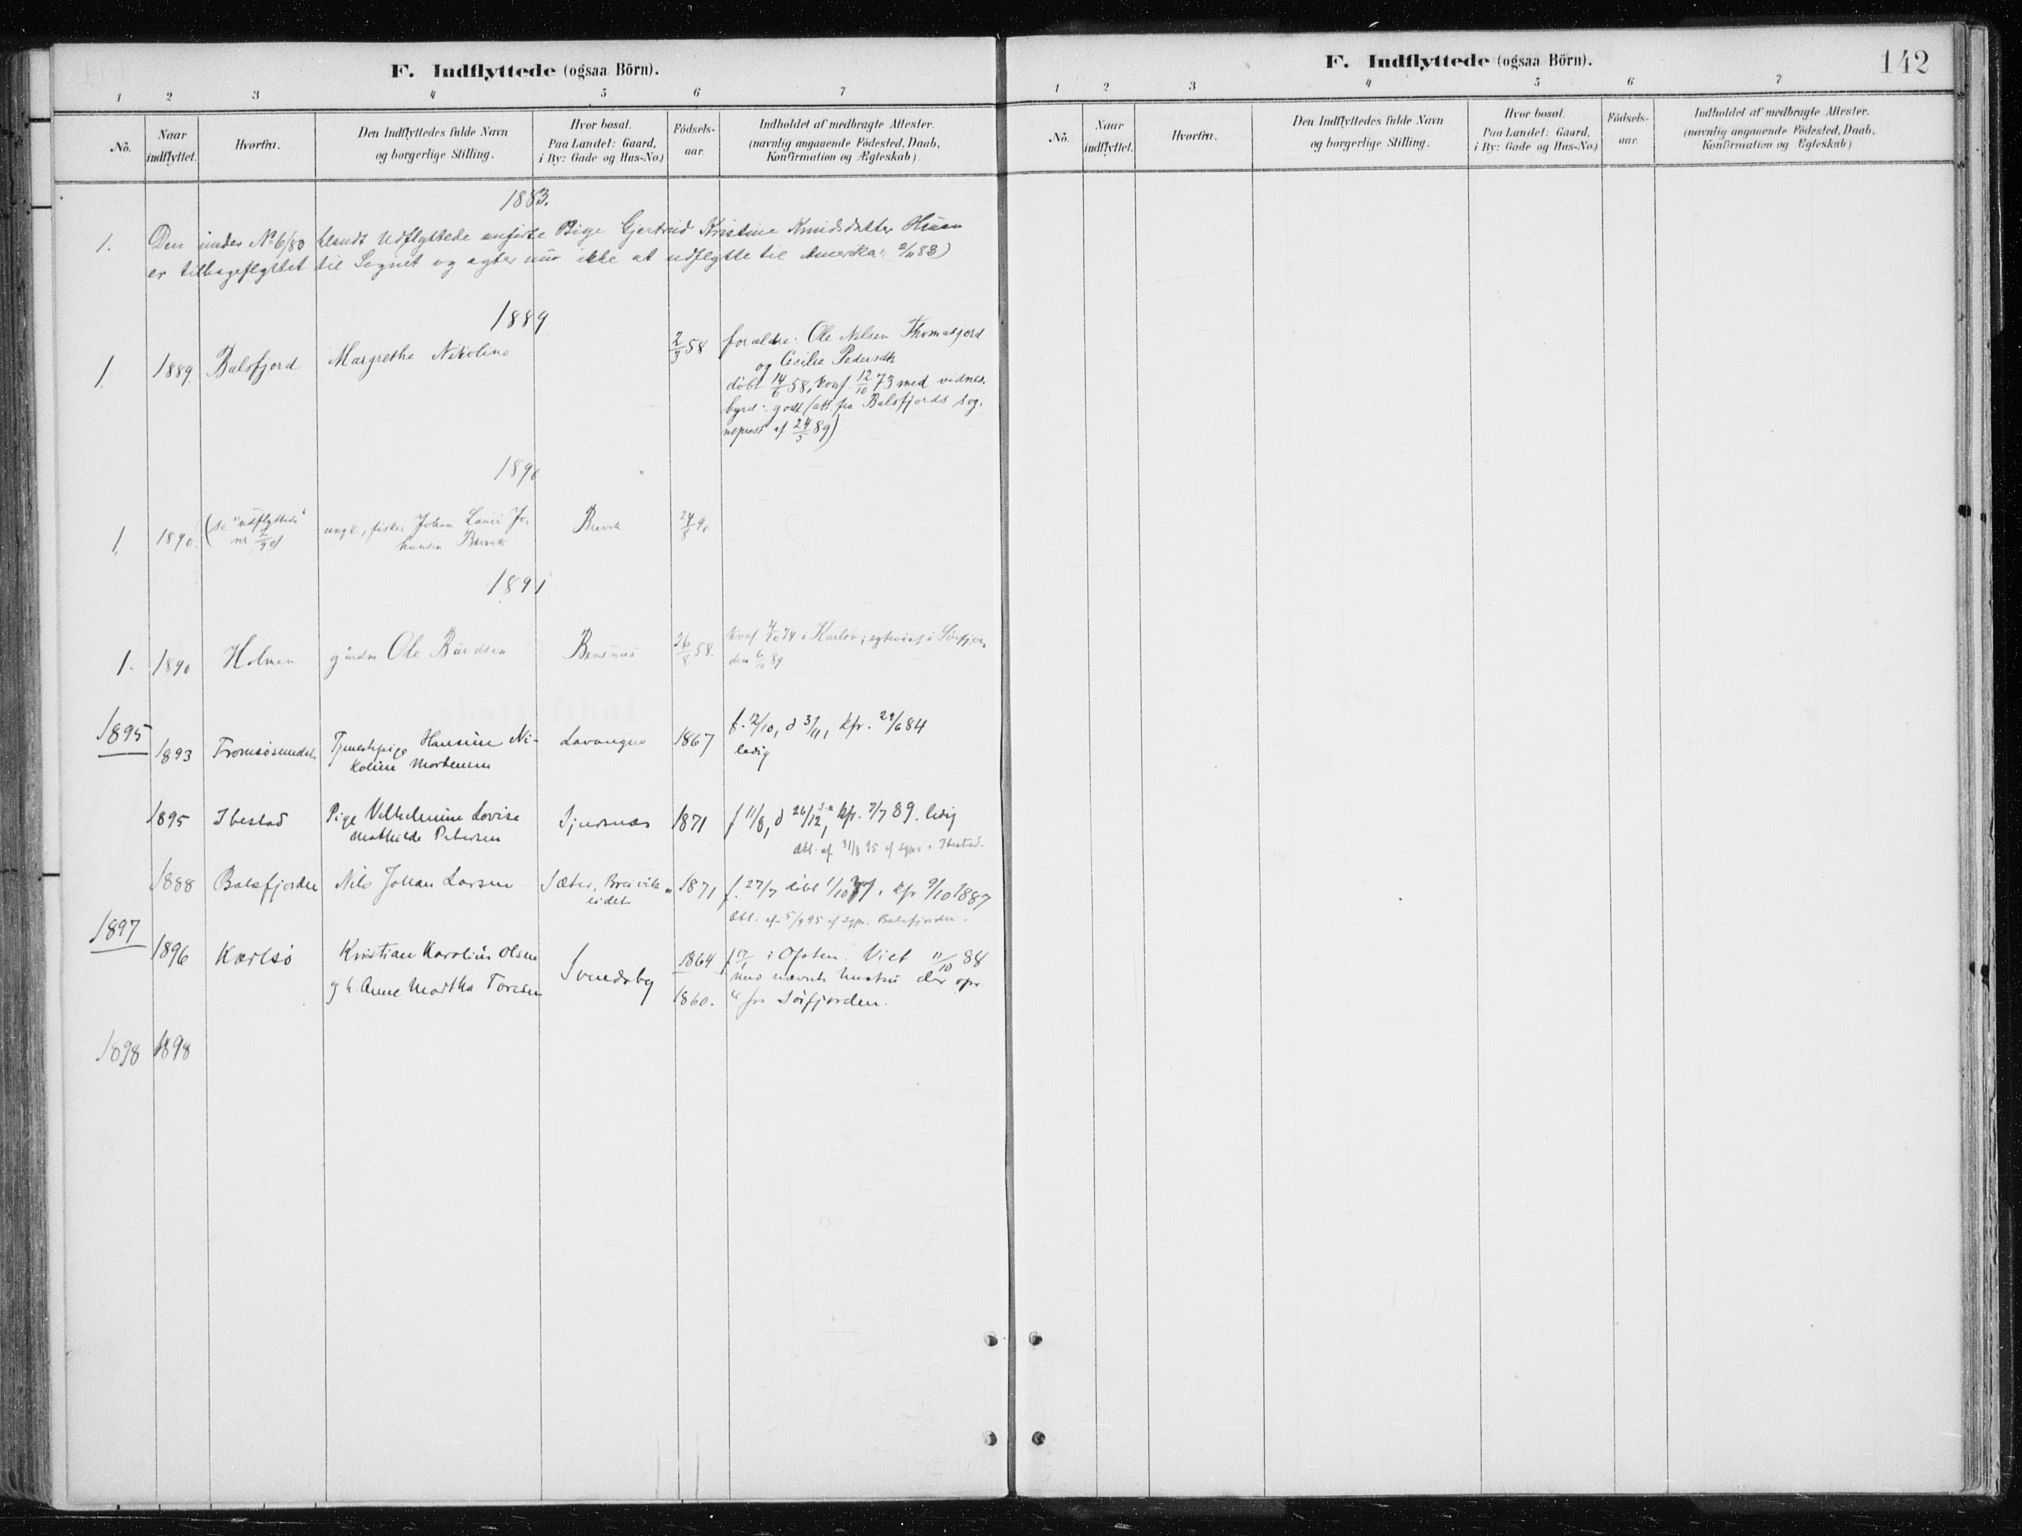 F. Indflyttede (ogsaa Börn).
1 2 3 4 5 6 7
No. Naar indflyttet. Hvorfra. Den Indflyttedes fulde Navn og borgerlige Stilling. Hvor bosat. Paa Landet: Gaard, i By: Gade og Hus-No.) Födsels-aar. Indholdet af medbragte Attester. (navnlig angaaende Födested, Daab, Konfirmation og Ægteskab).
1883.
1. Den under No 6/83 blandt Udflyttede anførte Pige Gjertrud Kristine Knudsdatter
er tilbageflyttet til Sognet og agter nu ikke at udflytte til Amerika
1889
1. 1889 Balsfjord Margrethe Nikoline 2/3 58 forældre: Ole Nilsen Thomasjord
og Cecilie Pedersdtr
døbt 14/6 58, konf. 12/10 73 med vidnes-
byrd: godt (att. fra Balsfjords sog-
neprest af 24/5 89)
1890
1. 1890. (se "udflyttede" nr 2/90) ungk., fisker Johan Lauri Jo-
hansen Brevik Brevik 24/8 90
1891
1. 1890 Holmen gårdm Ole Bårdsen Bensnes 26/8 58. konf. 4/10 74 i Karlsø; egteviet i Sørfjor
den 6/10 89.
1895
1893 Tromsøsundet Tjenestepige Hansine Ni-
koline Mortensen Lavangen 1867 f. 12/10, d 3/11, kfr. 29/6 84
ledig
1895 Ibestad Pige Vilhelmine Lovise
Mathilde Petersen Sjursnes 1871 f 11/8, d 26/12, kfr. 7/7 89. ledig
Att. af 31/3 95 af Sgpr. i Ibestad.
1888 Balsfjorden Nils Johan Larsen Sæter, Breivik-
eidet 1871 f. 27/7 døbt 1/10, kfr 9/10 1887
Att. af 5/9 95 af Sgpr. i Balsfjorden.
1897
1896 Karlsø Kristian Karolius Olsen
og h. Anne Martha Toresen Svendsby 1864
1860. i Ofoten. Viet 11/10 88
med nævnte hustru der opr
er fra Sørfjorden.
1898 1898
F. Indflyttede (ogsaa Börn).
142
1 2 3 4 5 6 7
No. Naar indflyttet. Hvorfra. Den Indflyttedes fulde Navn og borgerlige Stilling. Hvor bosat. Paa Landet: Gaard, i By: Gade og Hus-No.) Födsels-aar. Indholdet af medbragte Attester. (navnlig angaaende Födested, Daab, Konfirmation og Ægteskab)